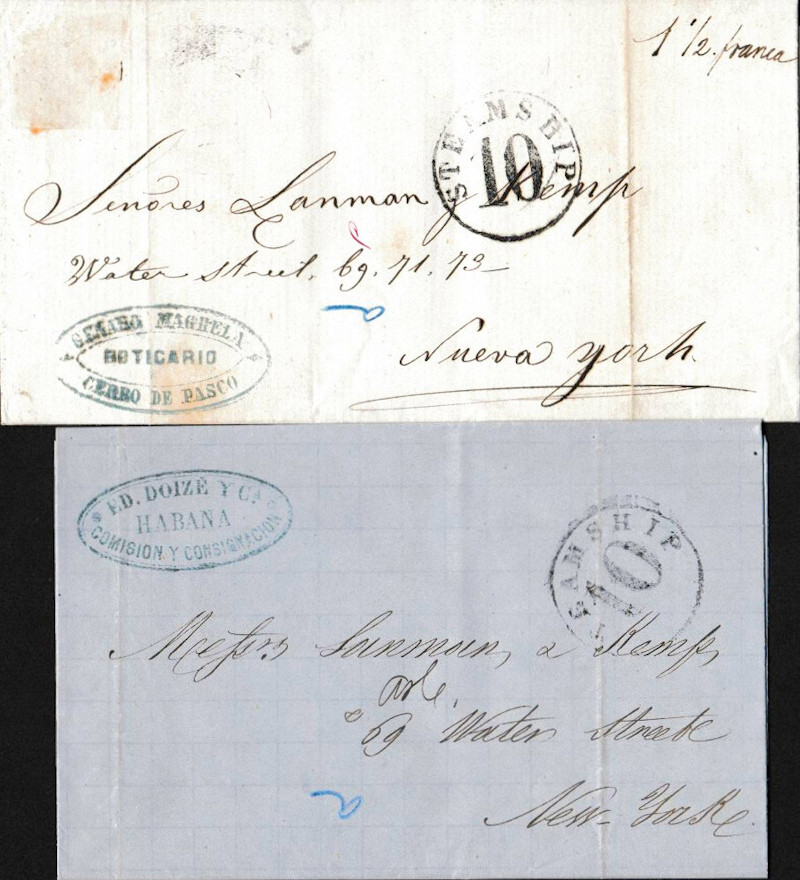 1 1/2. franca
STEAMSHIP
10
Señores Lanman y Kemp
Water street, 69. 71. 73
a
MAGRELA
BOTICARIO
CERRO DE PASCO
Nueva york.
ED. DOIZÉ Y Cª
HABANA
COMISION Y CONSIGNACION
EAMSHIP
10
Messrs Lanman, & Kemp,
69 Water Streete
a
New-York.